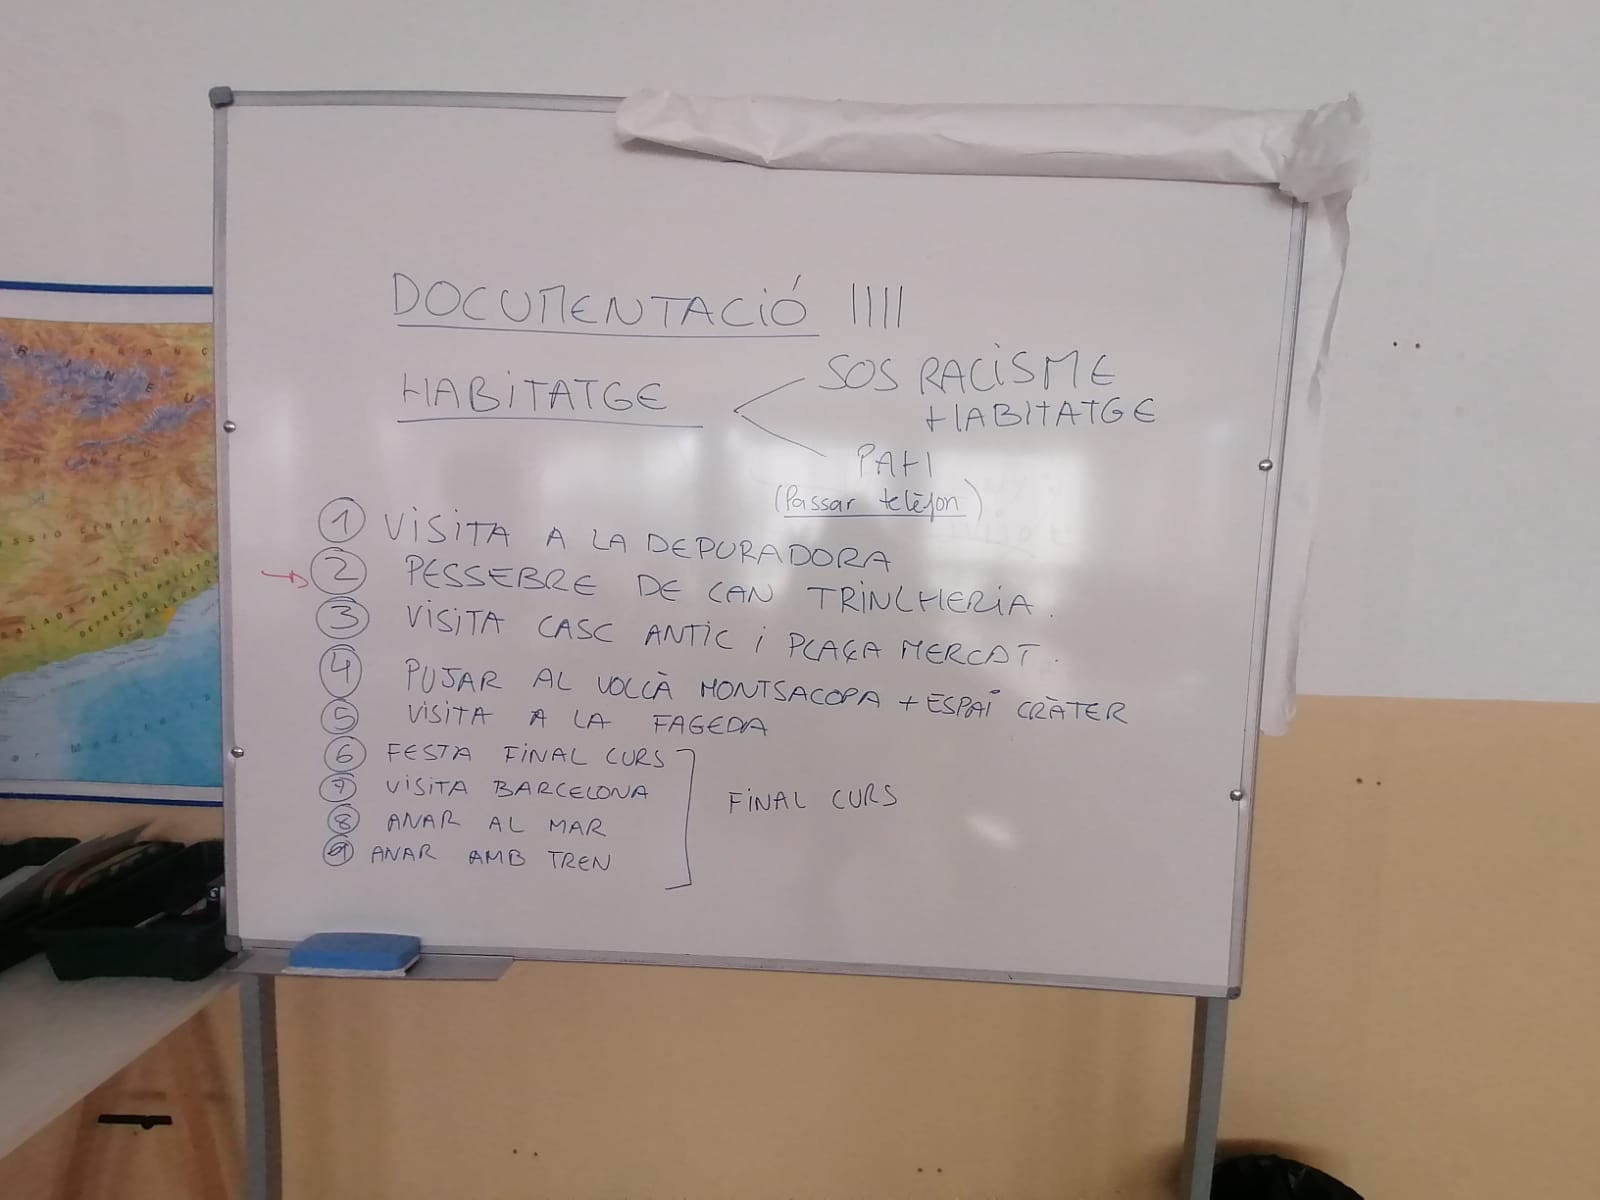 DOCUMENTACIÓ IIII
HABITATGE
SOS RACISME
HABITATGE
PAHI
(Passar telèfon)
1 VISITA A LA DEPURADORA
→ 2 PESSEBRE DE CAN TRINCHERIA.
3 VISITA CASC ANTIC I PLAÇA MERCAT.
4 PUJAR AL VOLCÀ MONTSACOPA + ESPAI CRÀTER
5 VISITA A LA FAGEDA
6 FESTA FINAL CURS
7 VISITA BARCELONA
8 ANAR AL MAR
9 ANAR AMB TREN
FINAL CURS